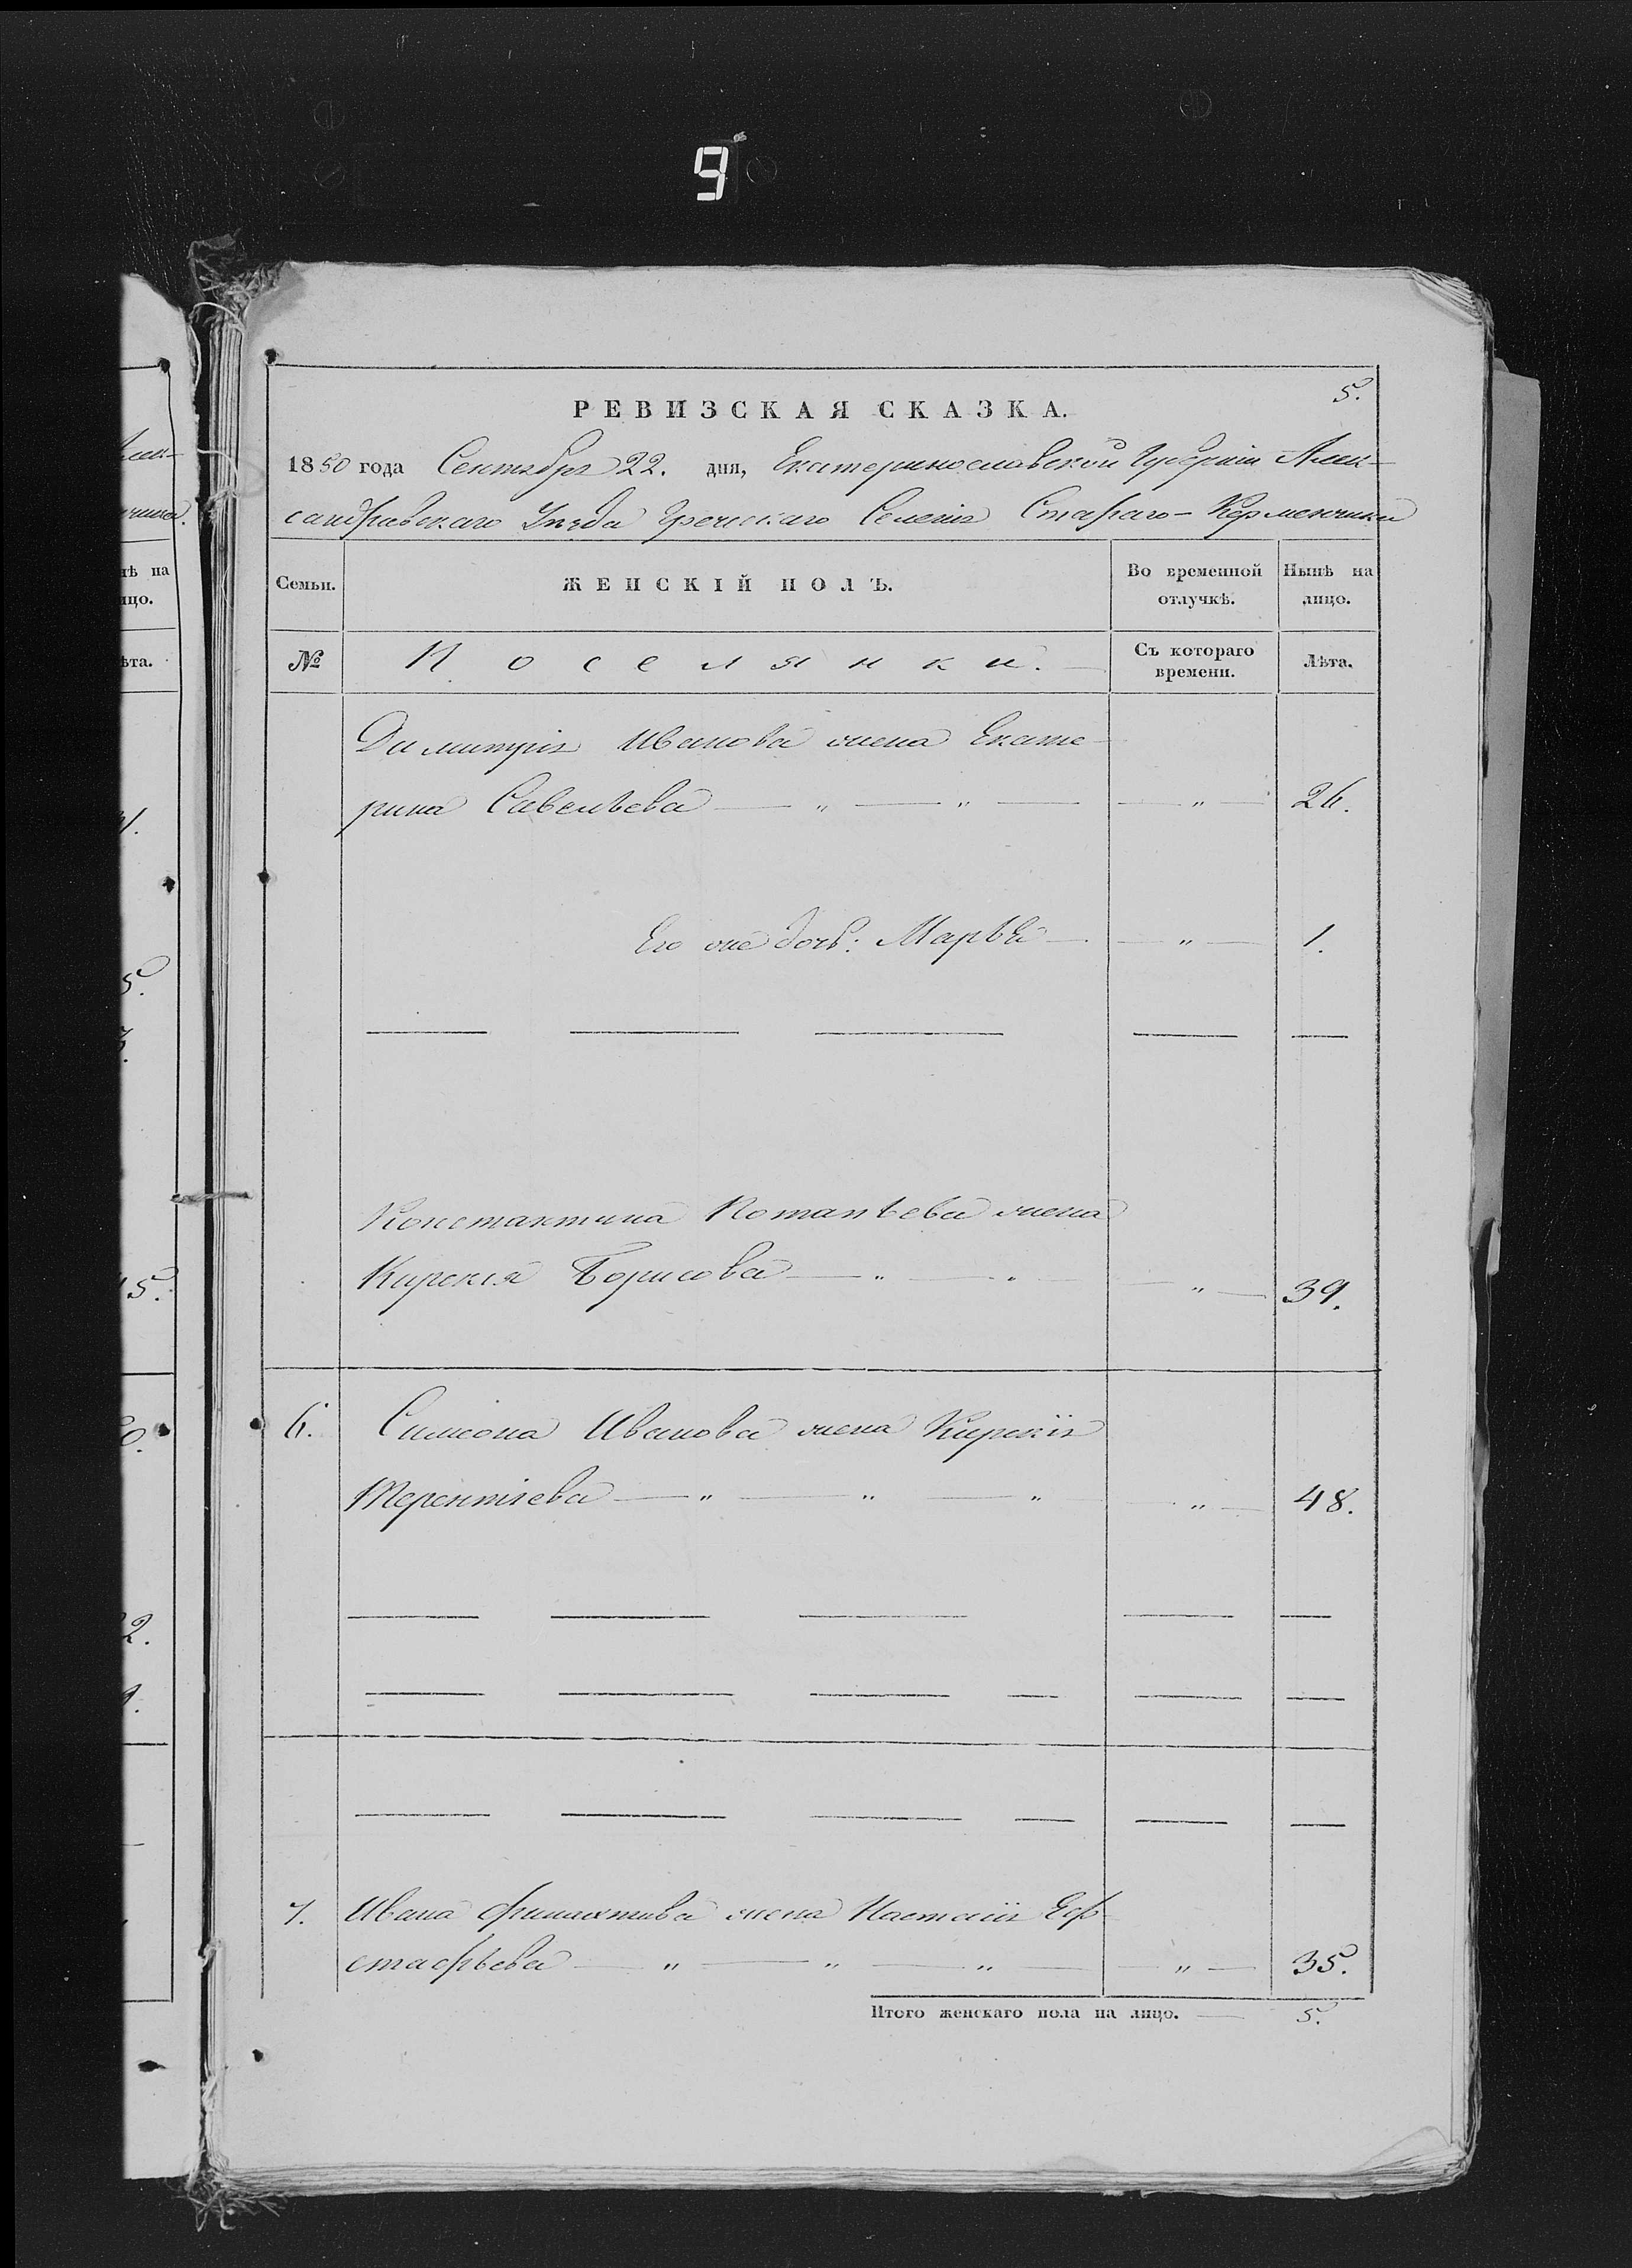 9
5.
РЕВИЗСКАЯ СКАЗКА.
1850 года Сентября 22. дня, Екатеринославской Губерніи Алек-
сандравскаго Уѣзда Греческаго Селенія Стараго-Керменчика
Семьи.
ЖЕНСКІЙ ПОЛЪ.
Во временной отлучкѣ.
Нынѣ на лицо.
№
Поселянки.
Съ котораго времени.
Лѣта.
Димитрія Иванова жена Екате-
рина Савельева — „ — „ — — „ — 26.
Его же дочь: Марья — — „ — 1.
Константина Потапьева жена
Кирекія Борисова — „ — „ — „ — 39.
6. Симеона Иванова жена Кирекія
Терентіева — „ — „ — „ „ — 48.
7. Ивана жена Настасія Еф-
стафьева — „ — „ — „ — „ — 35.
Итого женскаго пола на лицо. — 5.